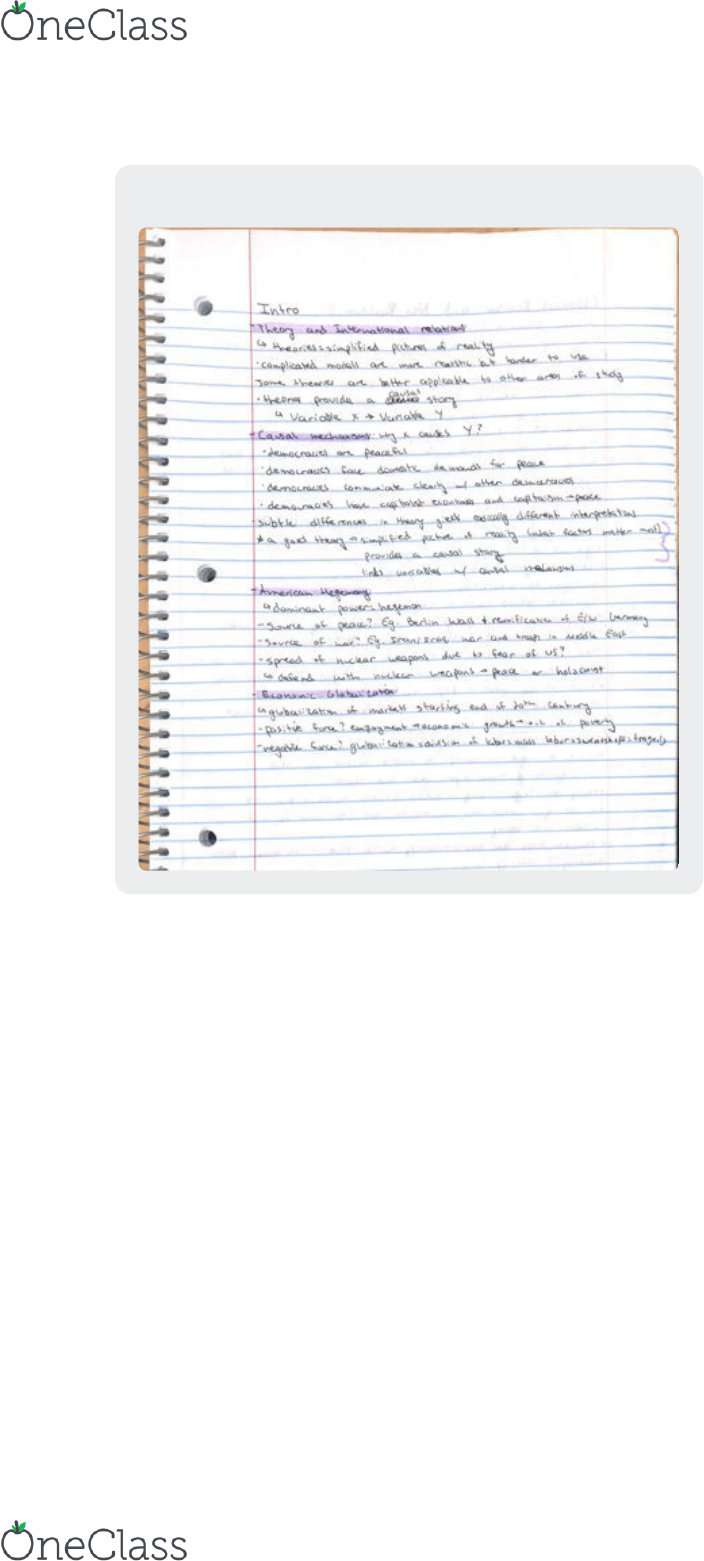 OneClass
Intro
- Theory and International relations
↳ theories = simplified pictures of reality
· complicated models are more realistic but harder to use
some theories are better applicable to other areas of study
· theories provide a causal story
↳ Variable X → Variable Y
- Causal mechanisms: why X causes Y?
· democracies are peaceful
· democracies face domestic demands for peace
· democracies communicate clearly w/ other democracies
· democracies have capitalist economies and capitalism → peace
- subtle differences in theory yield radically different interpretations
* a good theory → simplified picture of reality (what factors matter most)
provides a causal story
links variables w/ causal mechanisms
- American Hegemony
↳ dominant power = hegemon
- source of peace? Eg. Berlin Wall & reunification of E/W Germany
- source of war? Eg. Iran/Iraq war and troops in Middle East
- spread of nuclear weapons due to fear of US?
↳ defend with nuclear weapons → peace or holocaust
- Economic Globalization
↳ globalization of markets starting end of 20th century
- positive force? employment → economic growth → out of poverty
- negative force? globalization = division of labor = mass labor = sweatshops =
OneClass